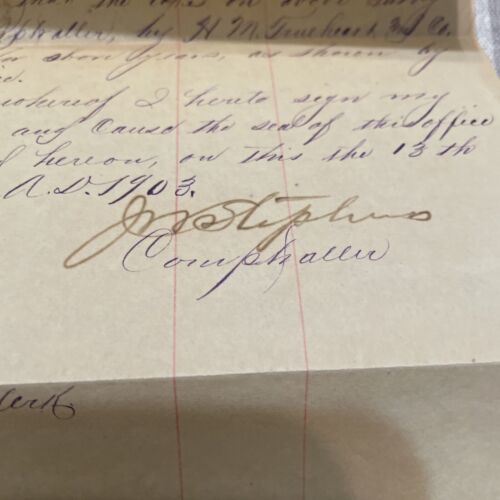 that the
by H. M. Trueheart and Co.
for years, as shown by
whereof I hereto sign my
and Cause the seal of this office
hereon, on this the 13th
A.D. 1903.
Jno Stephens
Comptroller